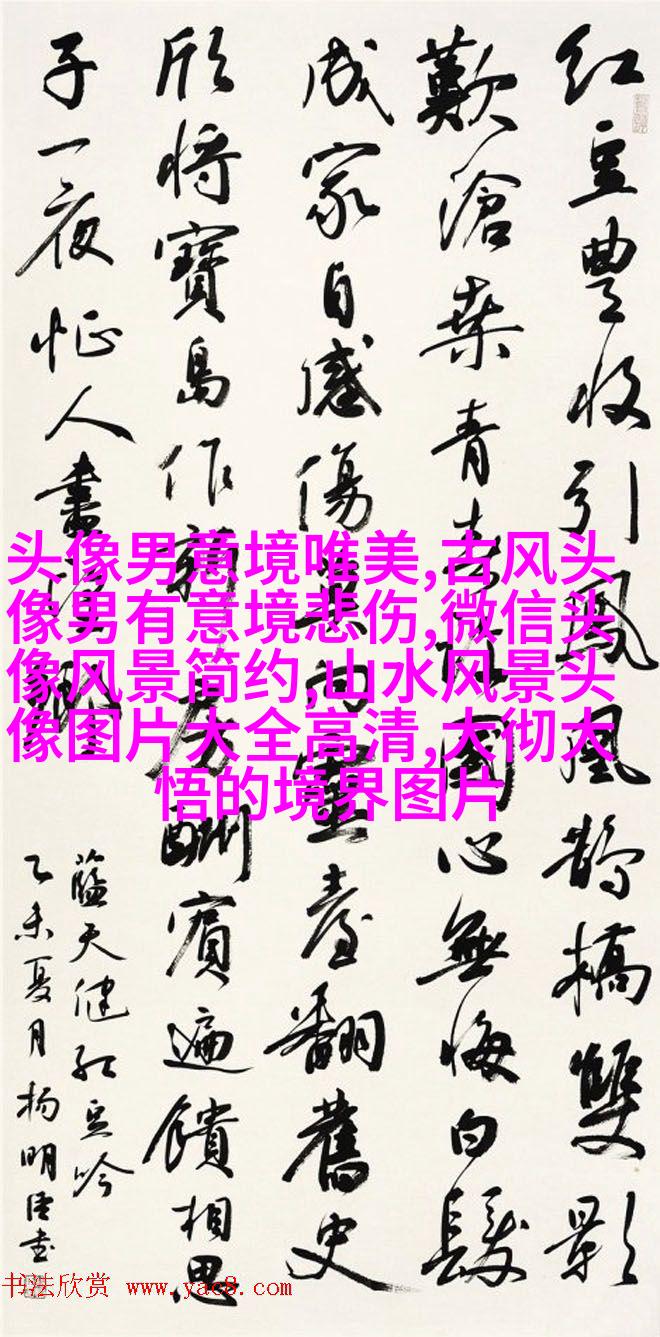 红豆豐收引鳳凰鵲橋雙影
歎滄桑青春許國心無悔白髮
成家自感傷靈臺翻舊史
欣將寶島作新房酬賓遍饋相思
子一夜忙人書
天健紅豆吟
乙未夏月杨明臣书
头像男意境唯美,古风头
像男有意境悲伤,微信头
像风景简约,山水风景头
像图片大全高清,大彻大
悟的境界图片
书法欣赏 www.yac8.com